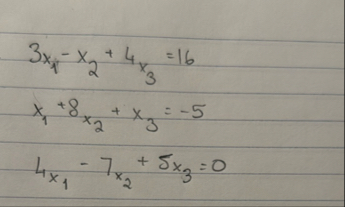 3x₁ - x₂ + 4x₃ = 16
x₁ + 8x₂ + x₃ = -5
4x₁ - 7x₂ + 5x₃ = 0